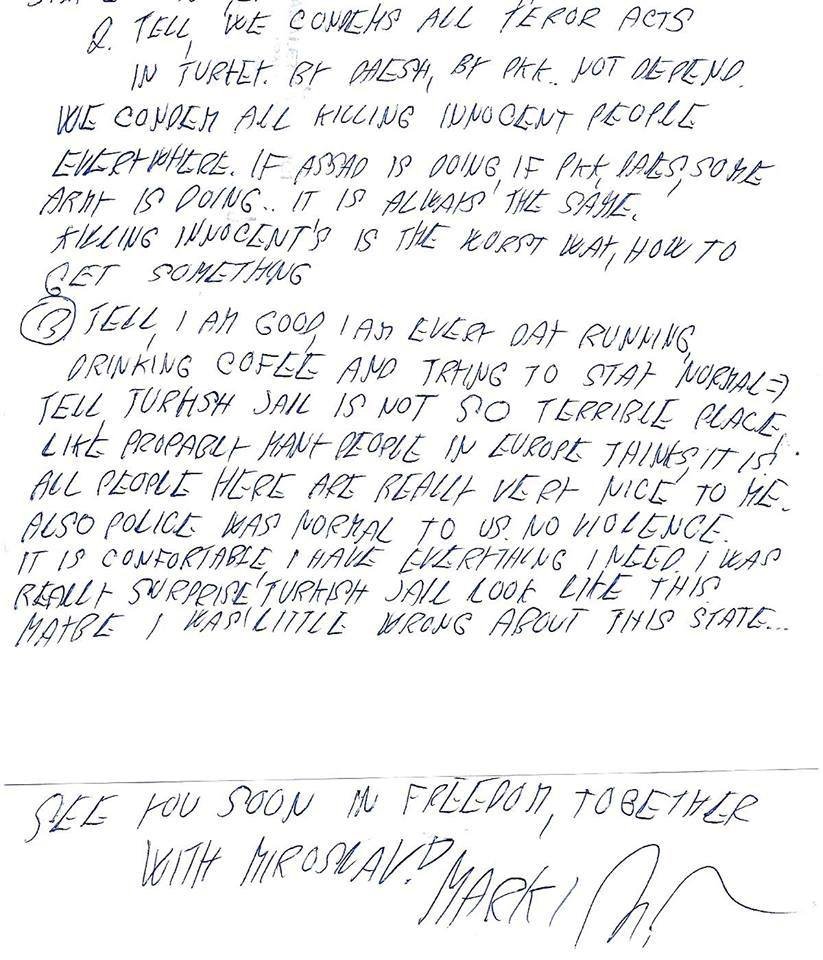 2. TELL, WE CONDEMS ALL TEROR ACTS
IN TURKEY. BY DAESH, BY PKK. NOT DEPEND.
WE CONDEM ALL KILLING INNOCENT PEOPLE
EVERYWHERE. IF ASSAD IS DOING, IF PKK, DAES, SOME
ARMY IS DOING.. IT IS ALWAYS THE SAME.
KILLING INNOCENT'S IS THE WORST WAY, HOW TO
GET SOMETHNG
3. TELL, I AM GOOD, I AM EVERY DAY RUNNING,
DRINKING COFEE AND TRYING TO STAY NORMAL =)
TELL TURKISH JAIL IS NOT SO TERRIBLE PLACE,
LIKE PROPABLY MANY PEOPLE IN EUROPE THINKS, IT IS!
ALL PEOPLE HERE ARE REALLY VERY NICE TO ME.
ALSO POLICE WAS NORMAL TO US. NO VIOLENCE.
IT IS CONFORTABLE, I HAVE EVERYTHING I NEED. I WAS
REALLY SURPRISE, TURKISH JAIL LOOK LIKE THIS
MAYBE I WAS LITTLE WRONG ABOUT THIS STATE...
SEE YOU SOON IN FREEDOM, TOGETHER
WITH MIROSLAV.
MARKI